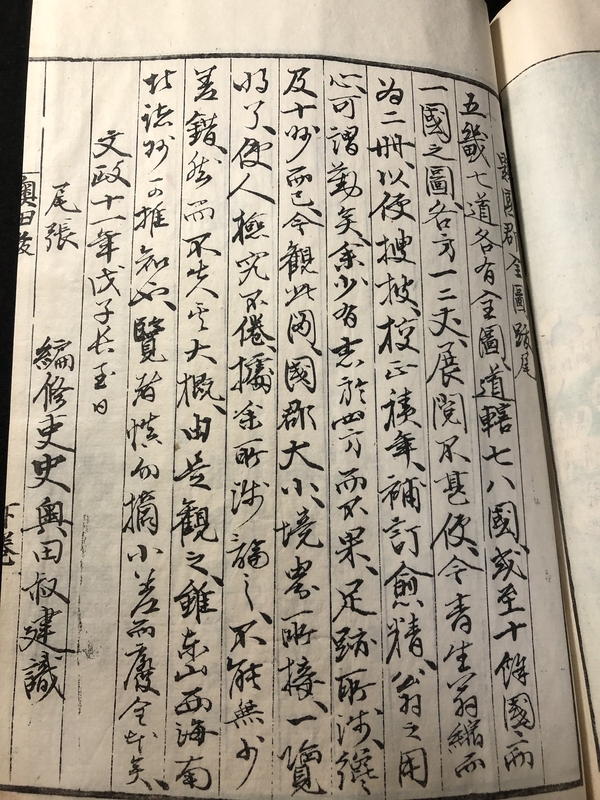 國郡全圖跋尾
五畿七道各有全圖道轄七八國或至十餘國而
一國之圖各方一二丈展閱不甚便今青生翁縮而
為二冊以便搜披挍正積年補訂愈精翁之用
心可謂勤矣余少有志於四方而不果足跡所涉纔
及十州而已今觀此圖國郡大小境界所接一覽
明了使人撫究不倦據余所涉論之不能無少
差錯然而不失其大概由是觀之雖東山西海南
北諸州可推知也覽者慎勿摘小差而廢全本矣
文政十一年戊子長至日
尾張
編修吏史奧田叔建識